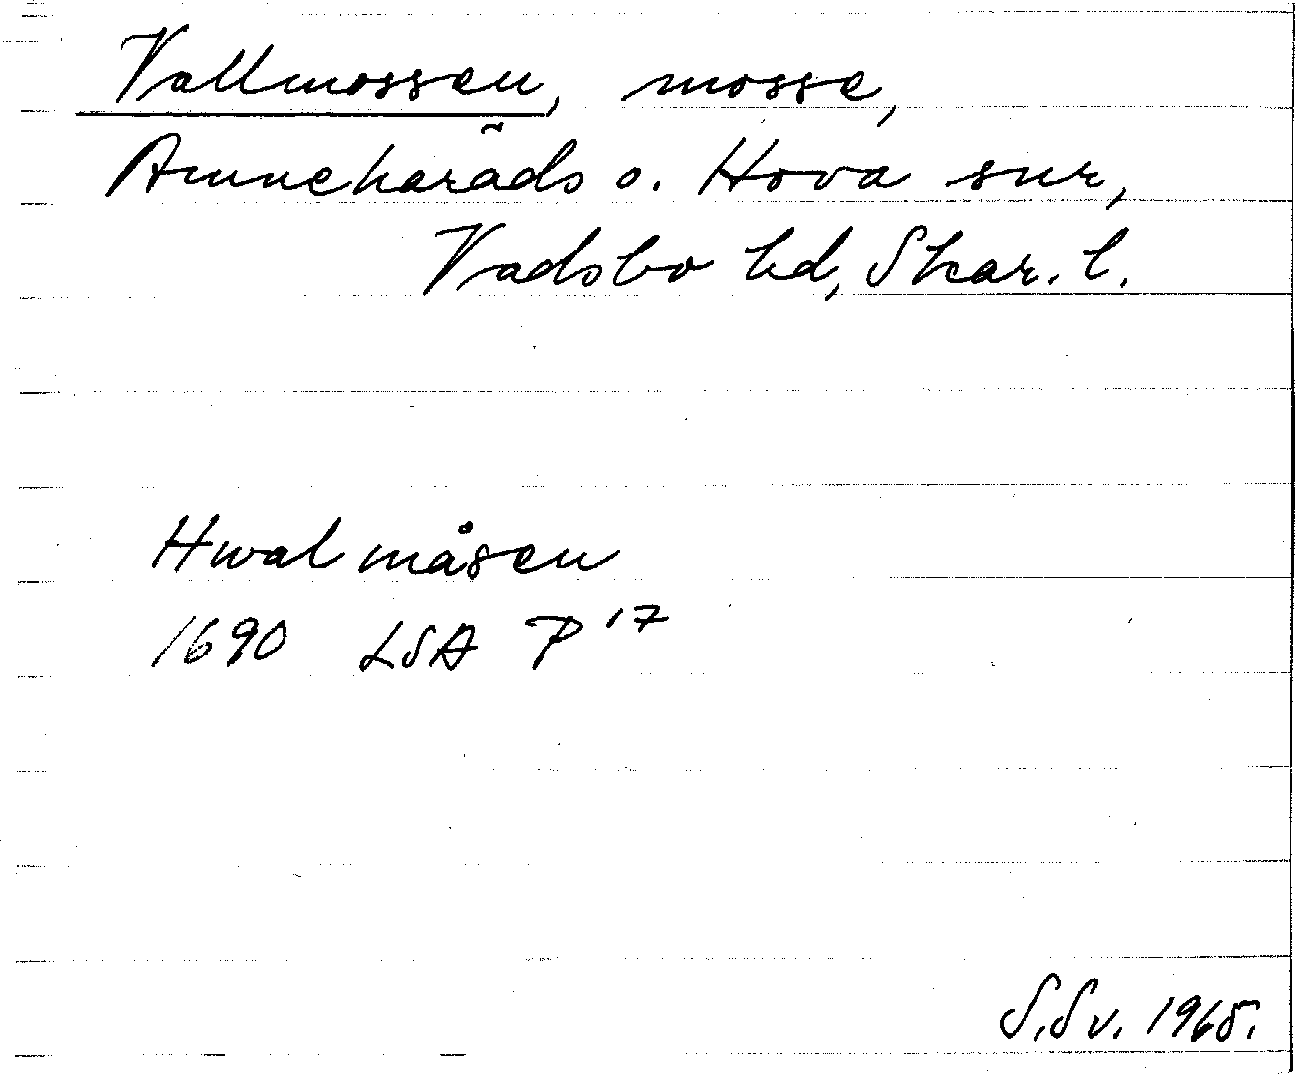 Vallmossen, mosse,
Amneharäds o. Hova snr,
Vadsbo hd, Skar. l.
Hwal måsen
1690 LSA P 17
S. Sv. 1965.